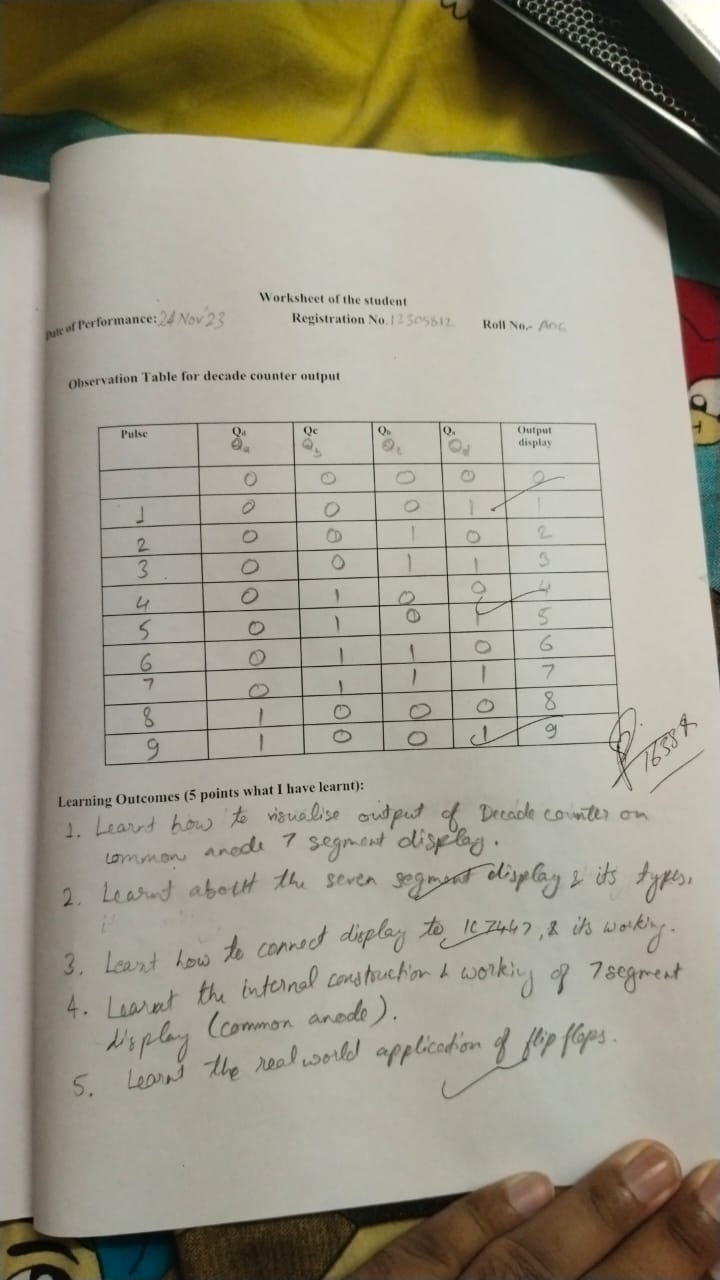 Worksheet of the student
Date of Performance: 24 Nov'23 Registration No. 12305812 Roll No.-
Observation Table for decade counter output
Pulse Qd Qc Qb Qa Output display
Qa Qb Qc Qd
0 0 0 0 0
1 0 0 0 1 1
2 0 0 1 0 2
3 0 0 1 1 3
4 0 1 0 0 4
5 0 1 0 1 5
6 0 1 1 0 6
7 0 1 1 1 7
8 1 0 0 0 8
9 1 0 0 1 9
Learning Outcomes (5 points what I have learnt):
1. Learnt how to visualise output of Decade counter on
common anode 7 segment display.
2. Learnt about the seven segment display & its types.
3. Learnt how to connect display to IC 7447, & its working.
4. Learnt the internal construction & working of 7 segment
display (common anode).
5. Learnt the real world application of flip flops.